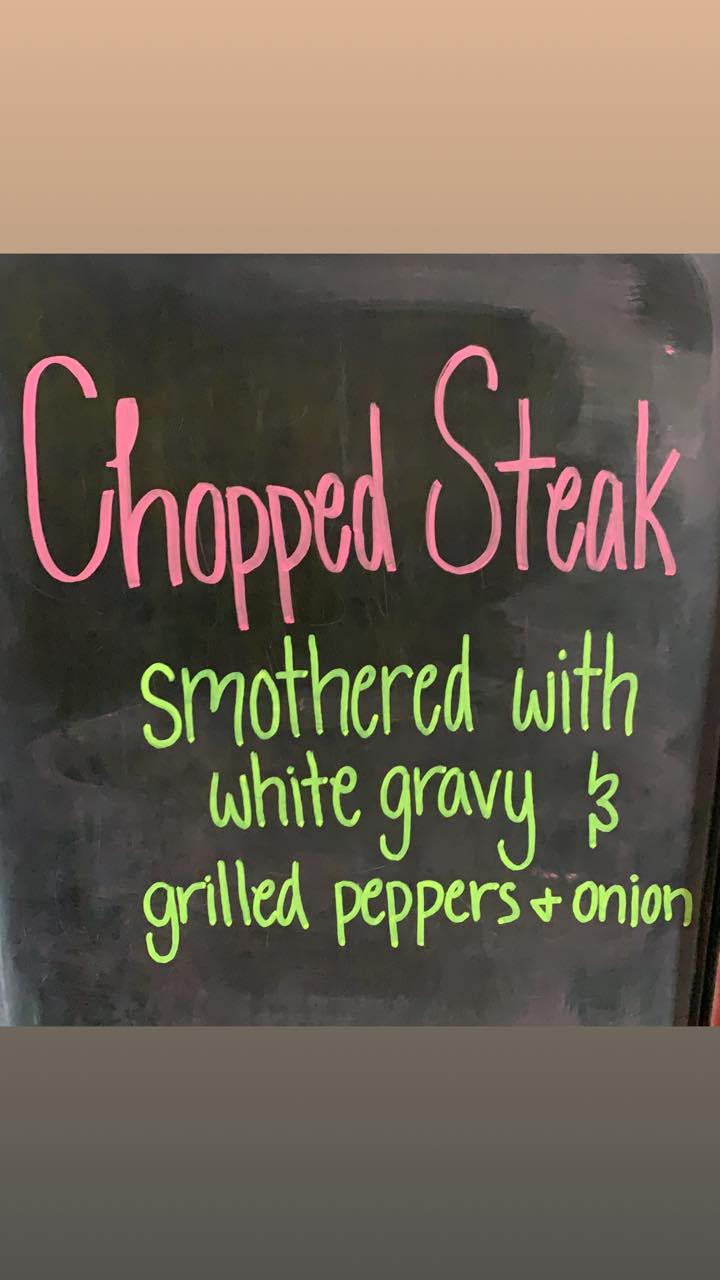 Chopped Steak
smothered with
white gravy &
grilled peppers + onion